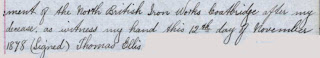 ment of the North British Iron Works Coatbridge after my
decease, as witness my hand this 12th day of November
1878 (Signed) Thomas Ellis